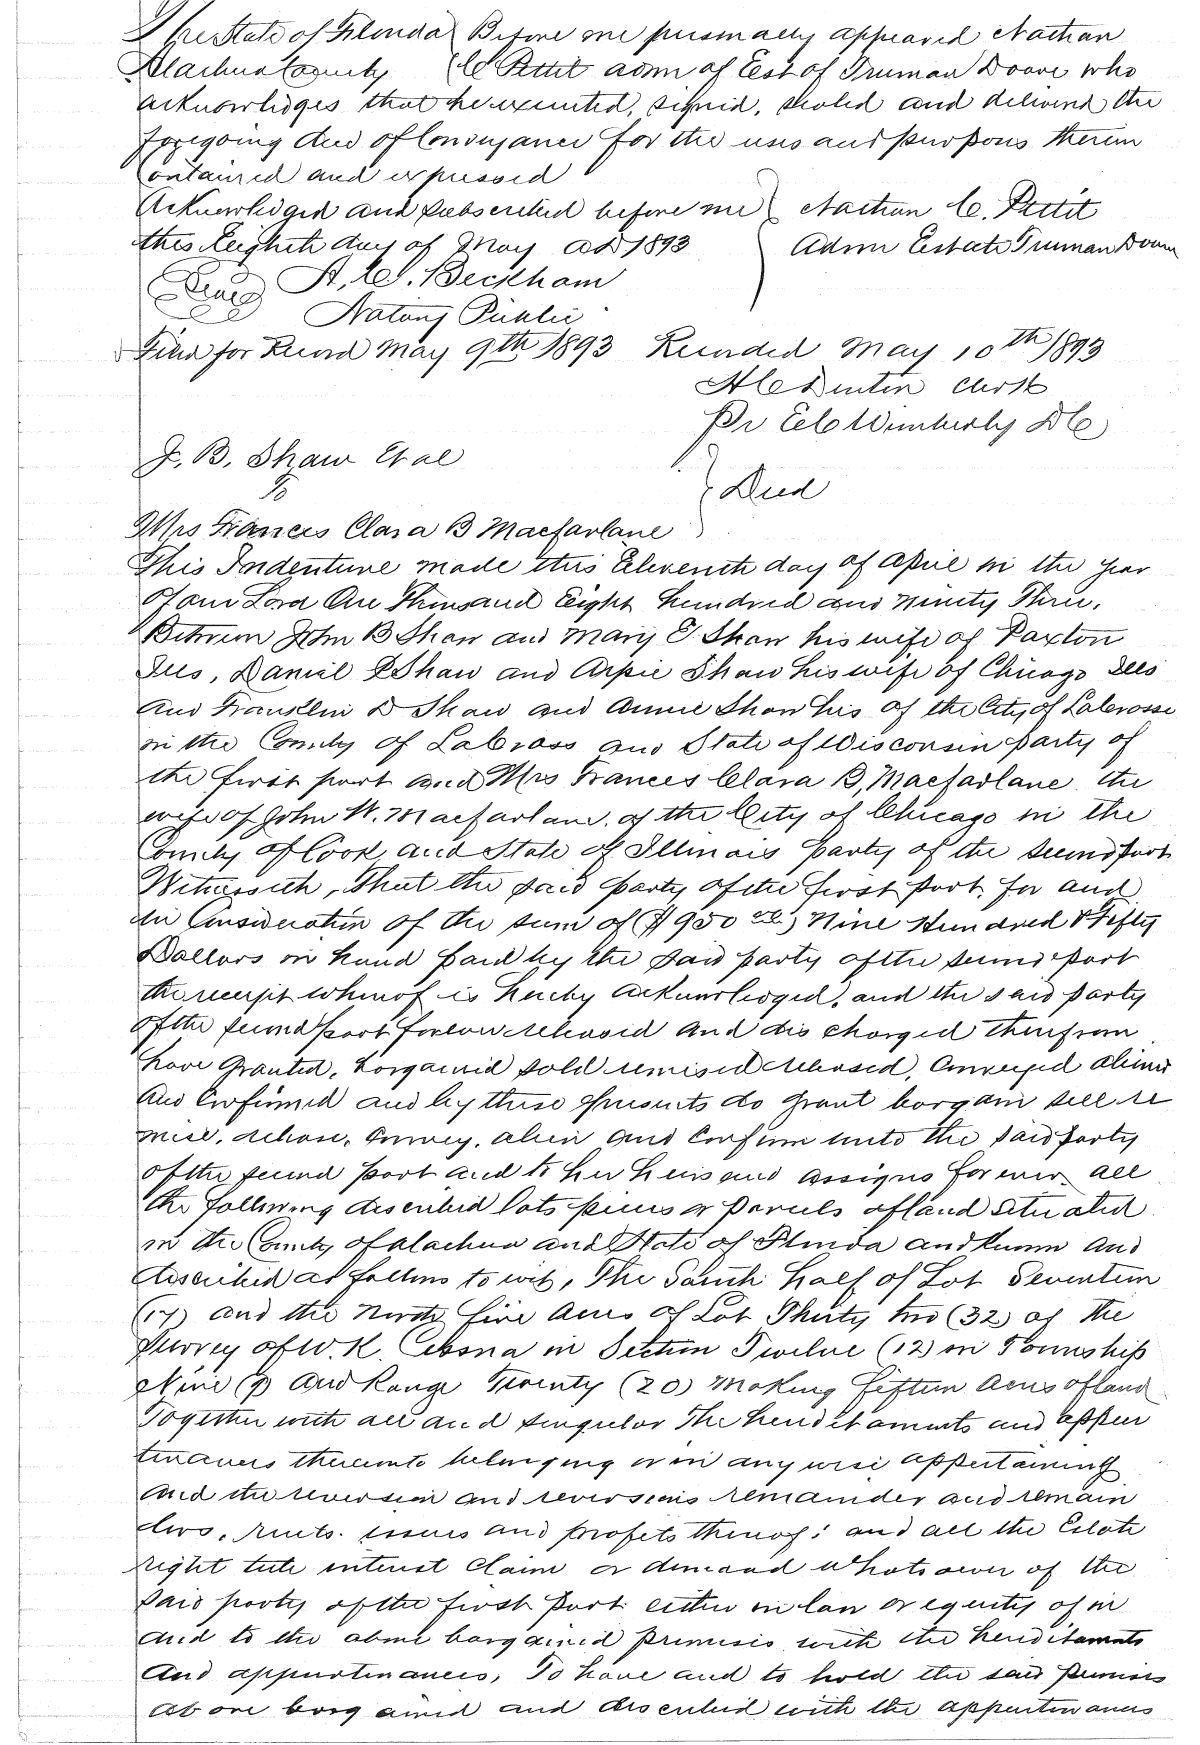 The State of Florida } Before me personally appeared Nathan
Alachua County } C. Pettit adm of Est of Truman Doove who
acknowledges that he executed, signed, sealed and delivered the
foregoing deed of Conveyance for the uses and purposes therein
Contained and expressed
Acknowledged and subscribed before me } Nathan C. Pettit
this Eighth day of May AD 1893 } Admr Estate Truman Doove
Seal A. C. Beckham
Notary Public
Filed for Record May 9th 1893 Recorded May 10th 1893
H C Denton Clerk
Pr E C Wimberly D C
J. B. Shaw Et al
To } Deed
Mrs Frances Clara B Macfarlane
This Indenture made this Eleventh day of April in the year
Of our Lord One Thousand Eight hundred and Ninety Three,
Between John B Shaw and Mary E Shaw his wife of Paxton
Ills, Daniel Shaw and Arpie Shaw his wife of Chicago Ills
And Franklin D Shaw and Annie Shaw his of the City of LaCrosse
in the County of LaCross and State of Wisconsin party of
the first part and Mrs Frances Clara B, Macfarlane the
wife of John W. Macfarlane, of the City of Chicago in the
County of Cook and State of Illinois party of the second part
Witnesseth, That the said party of the first part, for and
in Consideration of the sum of ($950 00) Nine Hundred & Fifty
Dollars in hand paid by the said party of the second part
the receipt whereof is hereby acknowledged, and the said party
of the second part forever released and discharged therefrom
have Granted, bargained sold remised released, Conveyed aliened
And Confirmed and by these presents do grant bargain sell re
mise, release, Convey, alien and Confirm unto the said party
of the second part and to her heirs and assigns forever, all
the following described lots pieces or parcels of land situated
in the County of Alachua and State of Florida and known and
described as follows to wit, The South half of Lot Seventeen
(17) and the North five acres of Lot Thirty two (32) of the
Survey of W. K. Cessna in Section Twelve (12) in Township
Nine (9) and Range Twenty (20) Making fifteen acres of land
Together with all and singular the hereditaments and appur
tenances thereunto belonging or in any wise appertaining
and the reversion and reversions remainder and remain
ders, rents, issues and profits thereof; and all the Estate
right title interest claim or demand whatsoever of the
said party of the first part either in law or equity of in
and to the above bargained premises with the hereditaments
And appurtenances, To have and to hold the said premises
above bargained and described with the appurtenances